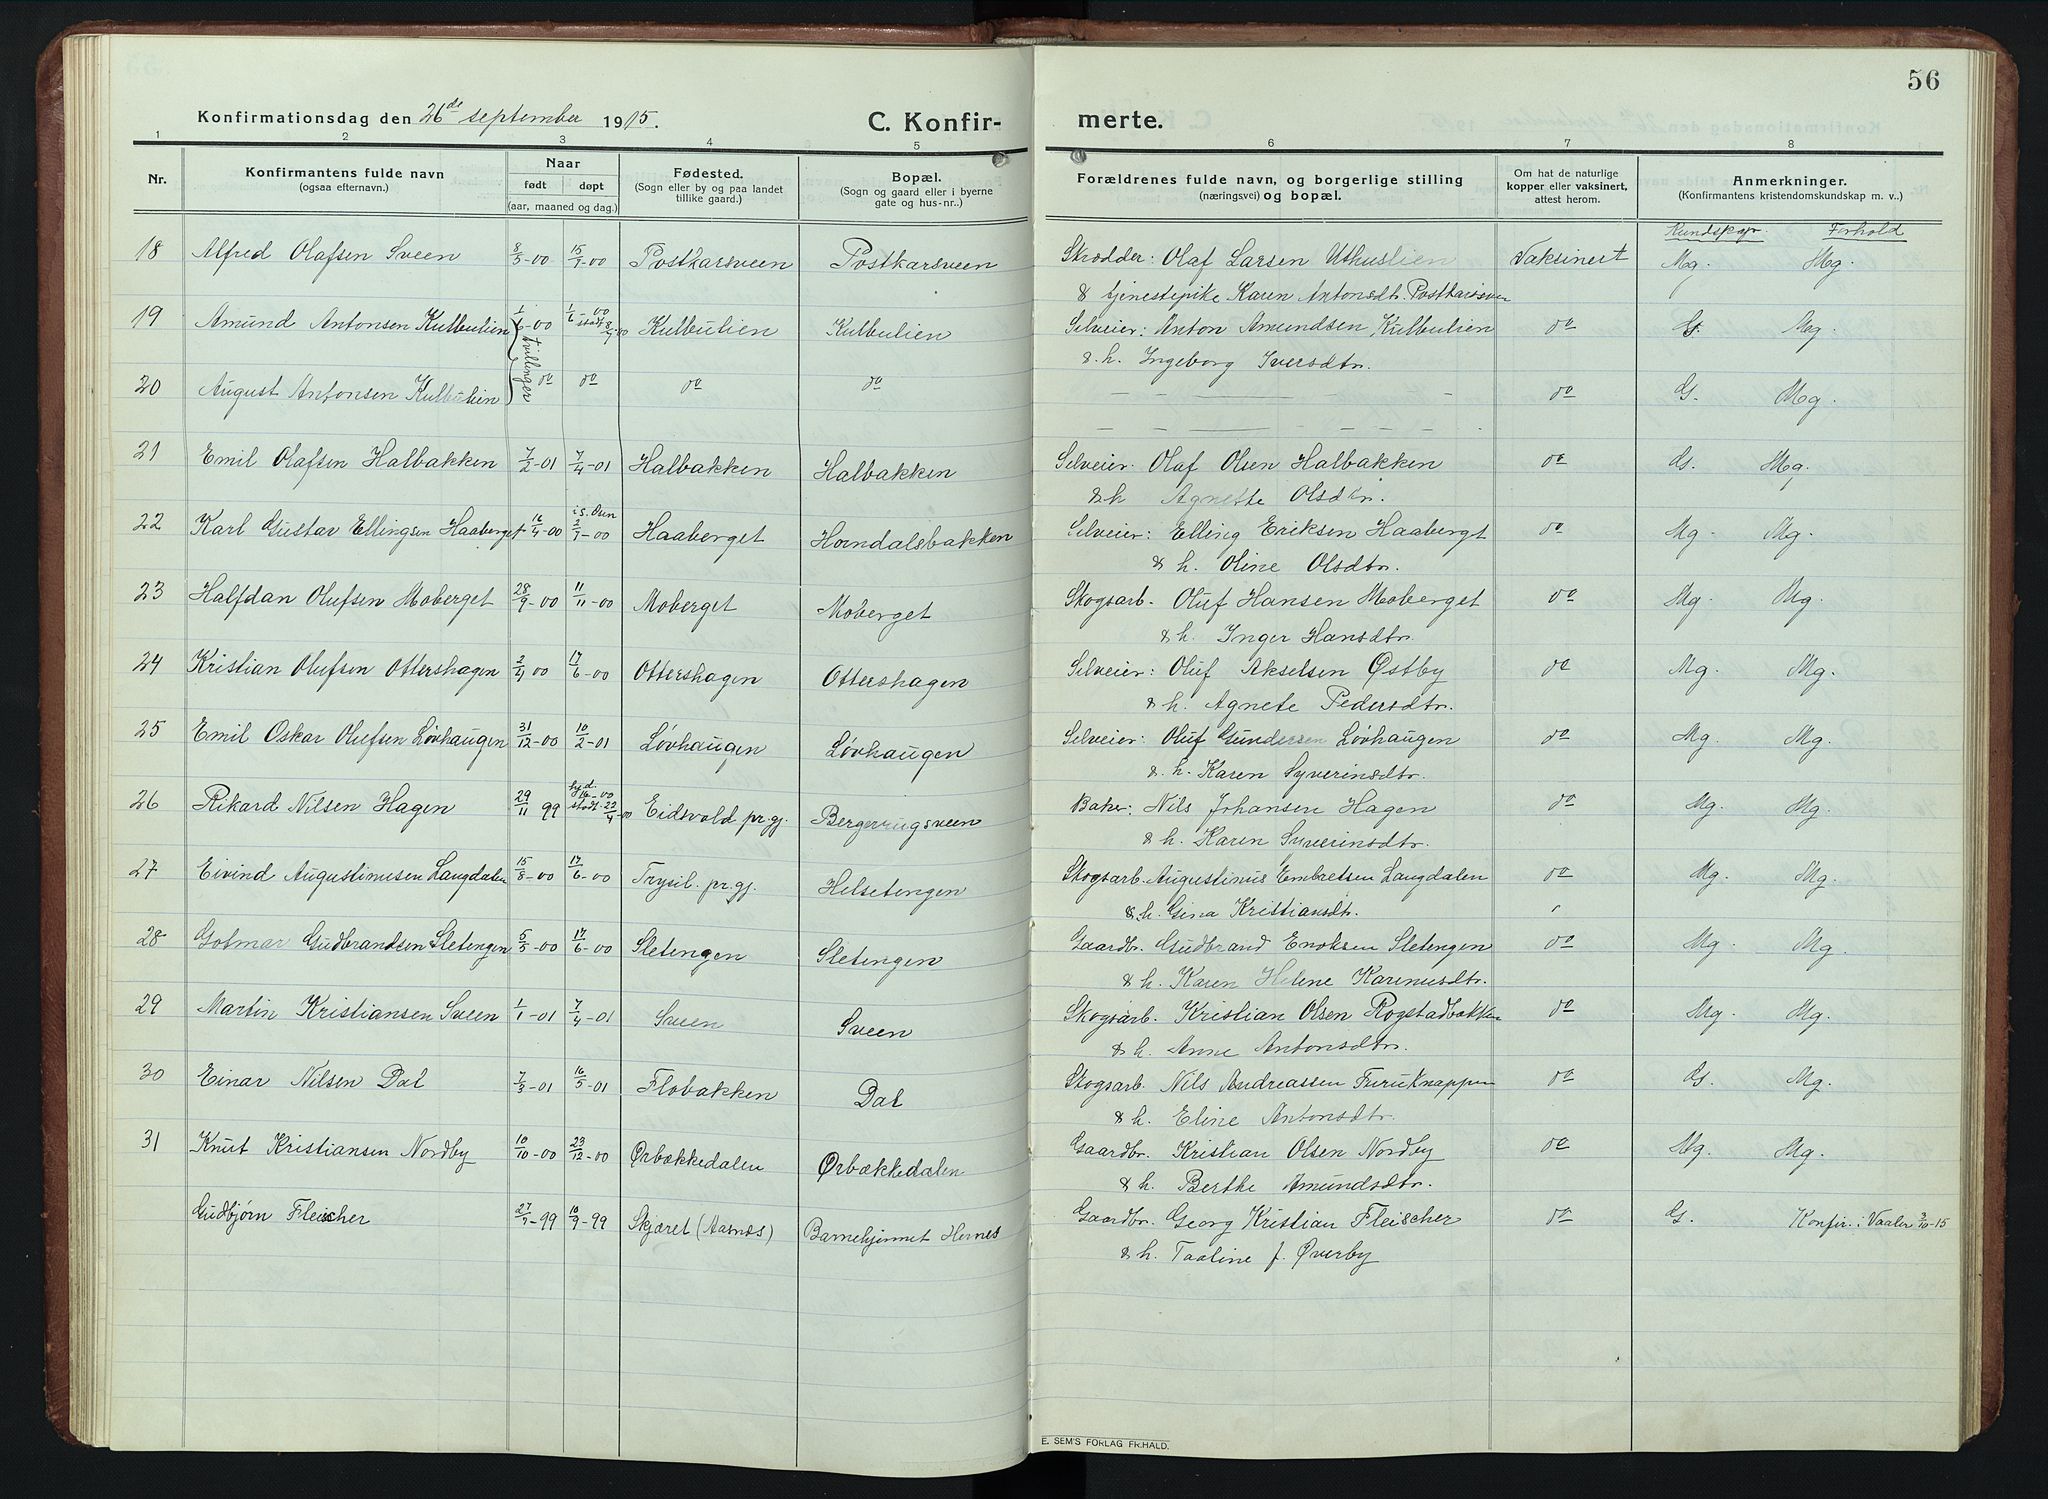 56
Konfirmationsdag den 26de september 1915.
C. Konfirmerte.
1 2 3 4 5 6 7 8
Nr. | Konfirmantens fulde navn (ogsaa efternavn.) | Naar født døpt (aar, maaned og dag.) | Fødested. (Sogn eller by og paa landet tillike gaard.) | Bopæl. (Sogn og gaard eller i byerne gate og hus-nr..) | Forældrenes fulde navn, og borgerlige stilling (næringsvei) og bopæl. | Om hat de naturlige kopper eller vaksinert, attest herom. | Anmerkninger. (Konfirmantens kristendomskundskap m. v..)
Kundskap. Forhold
18 Alfred Olafsen Sveen 8/5-00 15/7-00 Postkarsveen Postkarsveen Skrædder: Olaf Larsen Uthuslien Vaksinert Mg. Mg.
& tjenestepike Karen Antonsdt. Postkarsveen
19 Amund Antonsen Kulbulien 1/6-00 1/6-00 stadf. 8/7-00 Kulbulien Kulbulien Selveier: Anton Amundsen Kulbulien do G. Mg.
tvillinger
& h. Ingeborg Iversdtr.
20 August Antonsen Kulbulien do do do do — — — do G. Mg.
— — —
21 Emil Olafsen Halbakken 7/2-01 7/4-01 Halbakken Halbakken Selveier: Olaf Olsen Halbakken do G. Mg.
& h Agnette Olsdtr.
22 Karl Gustav Ellingsen Haaberget 16/4-00 i S. Osen 2/7-00 Haaberget Horndalsbakken Selveier: Elling Eriksen Haabergt do Mg. Mg.
& h. Oline Olsdtr.
23 Halfdan Olufsen Moberget 28/9-00 11/11-00 Moberget Moberget Skogsarb. Oluf Hansen Moberget do Mg. Mg.
& h. Inger Hansdtr.
24 Kristian Olufsen Ottershagen 2/4 00 17/6-00 Ottershagen Ottershagen Selveier: Oluf Akselsen Østby do Mg. Mg.
& h. Agnete Pedersdtr.
25 Emil Oskar Olufsen Løvhaugen 31/12-00 10/2-01 Løvhaugen Løvhaugen Selveier: Oluf Gundersen Løvhaugen do Mg. Mg.
& h. Karen Syverinsdtr.
26 Rikard Nilsen Hagen 29/11 99 stadf. 22/4-00 Eidsvold pr.gj. Bergerrugsveen Baker: Nils Johansen Hagen do Mg. Mg.
& h. Karen Syverinsdtr.
27 Eivind Augustinusen Langdalen 15/8-00 17/6-00 Trysil pr.gj. Helsetengen Skogsarb. Augustinus Embretsen Langdalen do Mg. Mg.
& h. Gina Kristiansdtr.
28 Gotmar Gudbrandsen Sletengen 5/5-00 17/6-00 Sletengen Sletengen Gaardbr. Gudbrand Enoksen Sletengen do Mg. Mg.
& h. Karen Helene Karenusdtr.
29 Martin Kristiansen Sveen 1/1-01 7/4-01 Sveen Sveen Skogsarb. Kristian Olsen Rogstadbakken do Mg. Mg.
& h. Anne Antonsdtr.
30 Einar Nilsen Dal 7/3-01 16/5-01 Flobakken Dal Skogsarb. Nils Andreassen Furuknappen do G. Mg.
& h. Eline Antonsdtr.
31 Knut Kristiansen Nordby 10/10-00 23/12-00 Ørbækkedalen Ørbækkedalen Gaardbr. Kristian Olsen Nordby do Mg. Mg.
& h. Berthe Amundsdtr.
Gudbjørn Fleischer 27/7-99 10/9-99 Skjæret (Aasnes) Barnehjemmet Hernes Gaardbr. Georg Kristian Fleischer do G. Konfir. i Vaaler 3/10-15
& h. Taaline f. Øverby
E. SEM'S FORLAG FR.HALD.